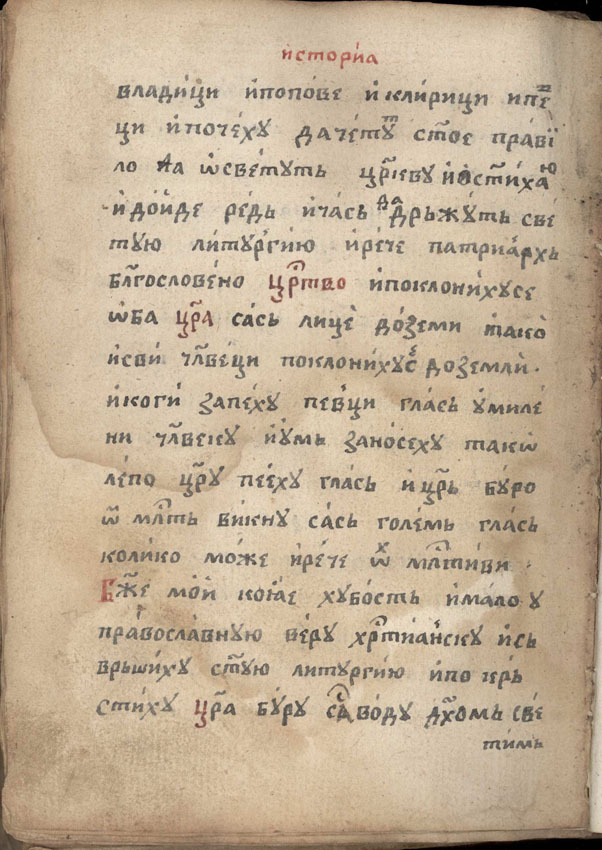 исторїа
влади́ци и҆попо́ве и҆ кли́рици и҆пѣⷡ
ци и҆поче́ху да че́тꙋⷮ ст҃ое пра́вї
ло да ѡ҆све́туть цр҃іеву
и҆ до́йде ре́дь и҆ ча́сь да дрьжꙋ́ть све́
тую литꙋргі́ю и҆ ре́че патриа́рхь
блгⷭ҇ослове́но црⷭ҇тво и҆поклони́хусе
ѡ҆́ба цр҃а са́сь лицѐ до́земи тако̀
и҆ сви́ чл҃ве́ци поклони́хꙋсⷷ доземли̇̀ ·
и҆ коги́ запе́ху певци гла́сь ꙋ҆миле́
ни чл҃ве́ку и҆у҆мь зано́сеху такѡ̀
ле́по цр҃у пе́еху гла́сь и҆ цр҃ь бу́ро
ѿ мл҃ть ви́кну са́сь голе́мь гла́сь
коли́ко мо́же и҆ре́че ѡⷯ мл҃тиви ·
Бж҃е мо́й коѧ́е ху́бость и҆ма́ло у
пра́вославную ве́ру хрⷭ҇тиа́нску и҆сь
врьши́ху ст҃ꙋю литꙋргі́ю и҆по крь
сти́ху цр҃а бу́ру са во́ду дх҃омь све́
тимь